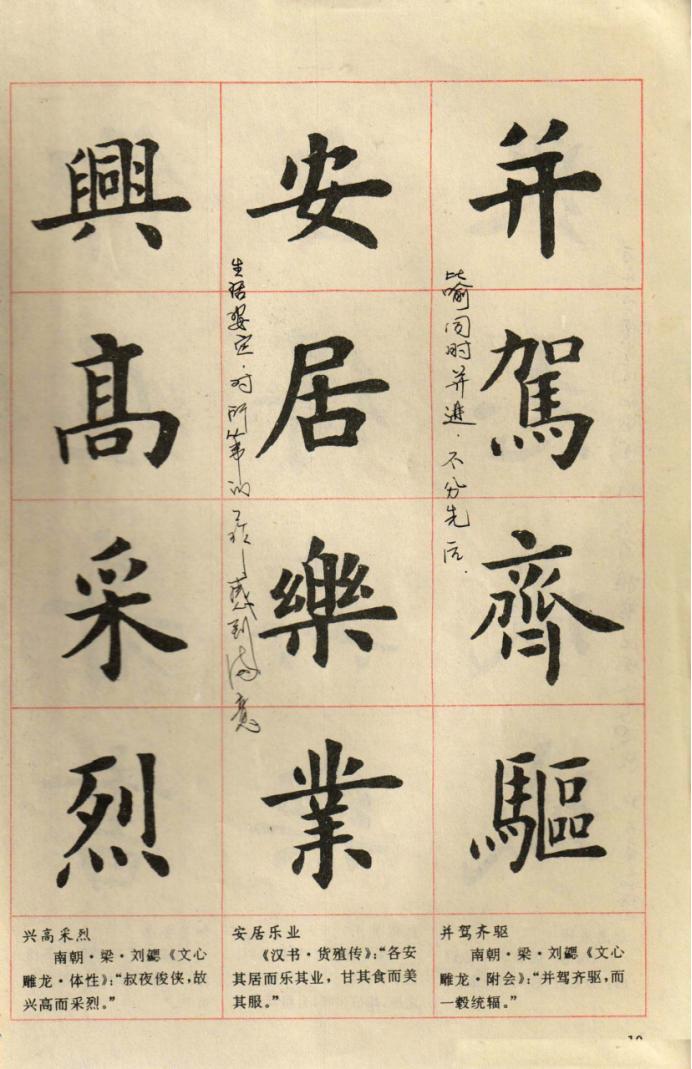 并駕齊驅
安居樂業
興高采烈
比喻同时并进.不分先后.
生活安定.对所从事的工作感到满意
并驾齐驱
南朝·梁·刘勰《文心
雕龙·附会》:“并驾齐驱,而
一毂统辐。”
安居乐业
《汉书·货殖传》:“各安
其居而乐其业,甘其食而美
其服。”
兴高采烈
南朝·梁·刘勰《文心
雕龙·体性》:“叔夜俊侠,故
兴高而采烈。”